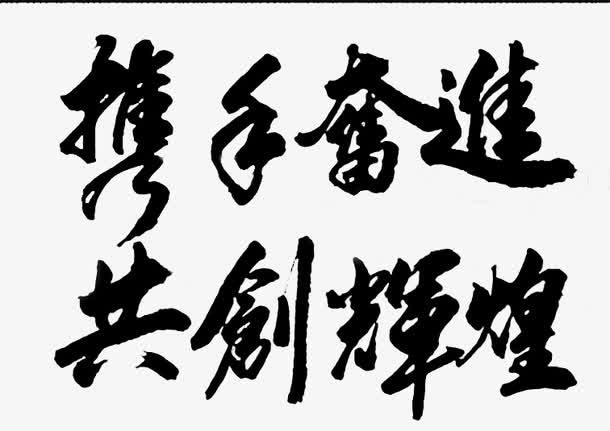 携手奮進
共創輝煌